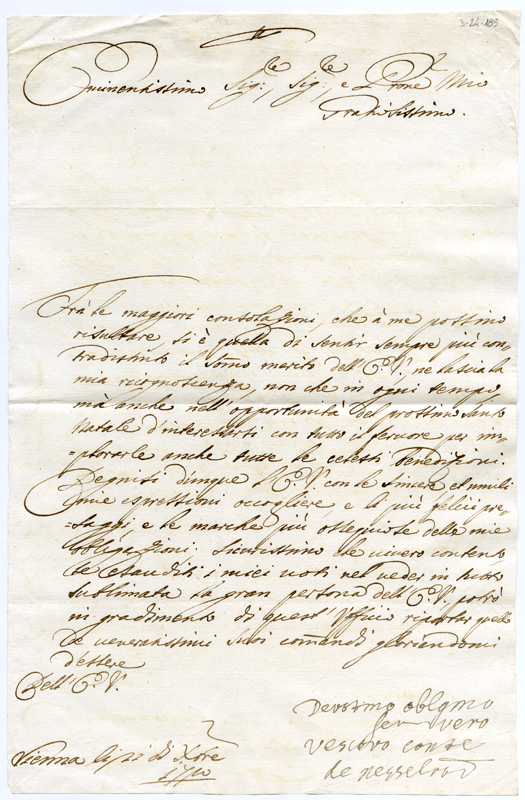 3-24-195
Eminentissimo Sig:re, Sig:re, e Prone Mio
Gratiosissimo.
Frà le maggiori consolazioni, che à me possino
risultare, si è quella di sentir sempre più con
tradistinto il sommo merito dell'E. V. ne lascia la
mia ricognoscenza, non che in ogni tempo,
mà anche nell'opportunità del prossimo Santo
Natale d'interessarsi con tutto il fervore per im
=plorarle anche tutte le celesti Benedizioni.
Degnisi dunque l'E. V. con le sincere et umili
mie espressioni accogliere e li più felici pre
=saggi, e le marche più ossequiose delle mie
obligazioni: sicurissimo che vivero contento
se esauditi i miei voti nel veder in
sublimata la gran persona dell'E. V. potrò
in gradimento di quest'Ufficio riportar quello
de veneratissimi suoi comandi gloriandomi
d'essere
Dell'E. V.
Devotmo oblgmo
ser vero
Vescovo conte
de Nesselrod
Vienna li di Xbre